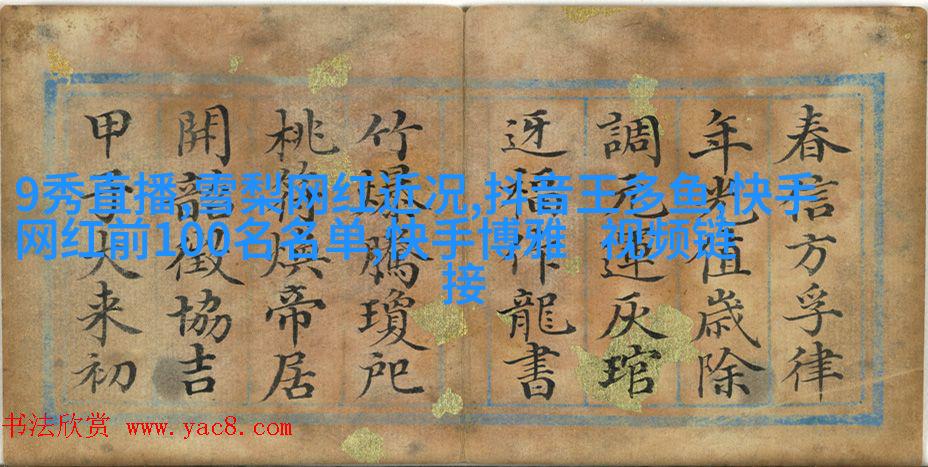 春信方孚律
年光值歲除
調元運灰琯
迓福作龍書
竹爆騰瓊戺
桃符煥帝居
開韶徵協吉
甲子大来初
9秀直播,雪梨网红近况,抖音王多鱼,快手
网红前100名名单,快手博雅 视频链
接
书法欣赏 www.yac8.com